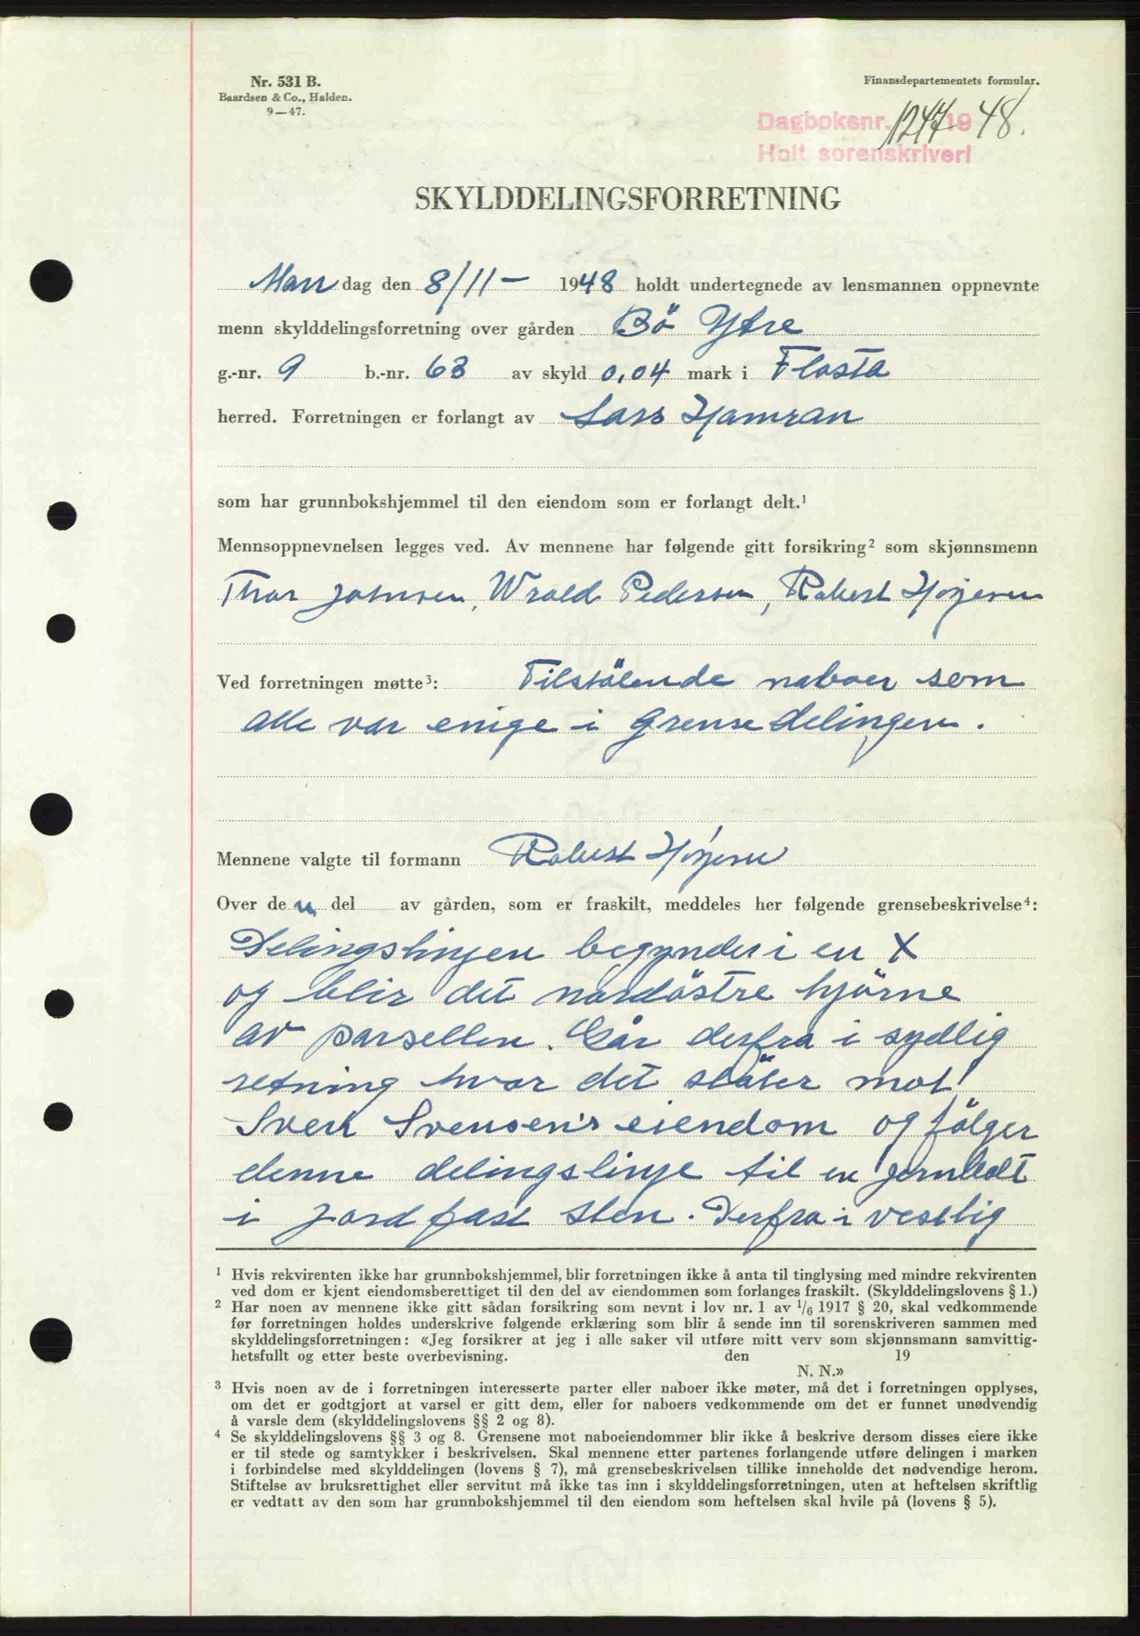 Nr. 531 B.
Baardsen & Co., Halden.
9—47.
Finansdepartementets formular.
Dagboksnr. 1247 1948.
Holt sorenskriveri
SKYLDDELINGSFORRETNING
Man dag den 8/11 - 1948 holdt undertegnede av lensmannen oppnevnte
menn skylddelingsforretning over gården Bö Ytre
g.-nr. 9 b.-nr. 63 av skyld 0,04 mark i Flosta
herred. Forretningen er forlangt av Lars Hamran
som har grunnbokshjemmel til den eiendom som er forlangt delt.¹
Mennsoppnevnelsen legges ved. Av mennene har følgende gitt forsikring² som skjønnsmenn
Thor Johnsen, Wrold Pedersen, Robert
Ved forretningen møtte³: Tilstölende naboer som
alle var enige i Grensedelingen.
Mennene valgte til formann Robert
Over de n del av gården, som er fraskilt, meddeles her følgende grensebeskrivelse⁴:
Delingslinjen begynder i en X
og blir det nordöstre hjörne
av parsellen. Går derfra i sydlig
retning hvor det stöter mot
Sven Svensen's eiendom og fölger
denne delingslinje til en jernbolt
i jordfast sten. Derfra i vestlig
¹ Hvis rekvirenten ikke har grunnbokshjemmel, blir forretningen ikke å anta til tinglysing med mindre rekvirenten
ved dom er kjent eiendomsberettiget til den del av eiendommen som forlanges fraskilt. (Skylddelingslovens § 1.)
² Har noen av mennene ikke gitt sådan forsikring som nevnt i lov nr. 1 av 1/6 1917 § 20, skal vedkommende
før forretningen holdes underskrive følgende erklæring som blir å sende inn til sorenskriveren sammen med
skylddelingsforretningen: «Jeg forsikrer at jeg i alle saker vil utføre mitt verv som skjønnsmann samvittig-
hetsfullt og etter beste overbevisning. den 19
N. N.»
³ Hvis noen av de i forretningen interesserte parter eller naboer ikke møter, må det i forretningen opplyses,
om det er godtgjort at varsel er gitt dem, eller for naboers vedkommende om det er funnet unødvendig
å varsle dem (skylddelingslovens §§ 2 og 8).
⁴ Se skylddelingslovens §§ 3 og 8. Grensene mot naboeiendommer blir ikke å beskrive dersom disses eiere ikke
er til stede og samtykker i beskrivelsen. Skal mennene etter partenes forlangende utføre delingen i marken
i forbindelse med skylddelingen (lovens § 7), må grensebeskrivelsen tillike inneholde det nødvendige herom.
Stiftelse av bruksrettighet eller servitut må ikke tas inn i skylddelingsforretningen, uten at heftelsen skriftlig
er vedtatt av den som har grunnbokshjemmel til den eiendom som heftelsen skal hvile på (lovens § 5).